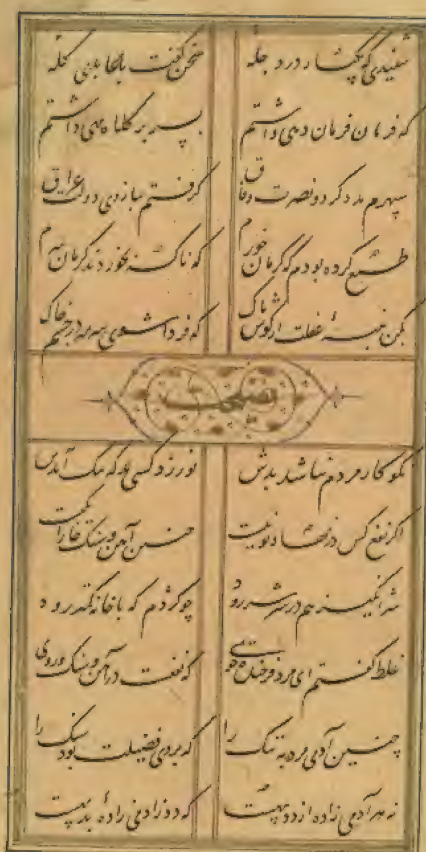 شنیدی که یکبار در دجلهٔ سخن گفت با عابدی کلهٔ
که فرمان فرمان دهی داشتم بسر بر کلاه مهی داشتم
سپهرم مدد کرد و نصرت وفاق گرفتم ببازوی دولت عراق
طمع کرده بودم که کرمان خورم که ناگه بخوردند کرمان سرم
بکن پنبهٔ غفلت از گوش پاک که فردا شوی سرمه در چشم خاک
نصیحت
نکوکار مردم نباشد بدش نورزد کسی بد که نیک آیدش
اگر نفع کس در نهاد تو نیست چنین آهن و سنگ خارا یکیست
شر انگیز هم در سر شر رود چو کژدم که با خانه کمتر رود
غلط گفتم ای مرد فرخنده خوی که نفعست در آهن و سنگ و روی
چنین آدمی مرده به ننگ را که بر وی فضیلت بود سنگ را
نه هر آدمی زاده از دد بهست که دد ز آدمی زادهٔ بد بهست